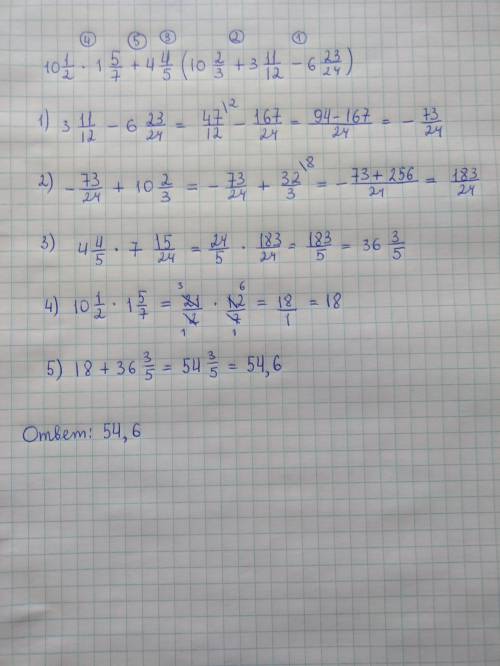 ④ ⑤ ③ ② ①
10 1/2 · 1 5/7 + 4 4/5 (10 2/3 + 3 11/12 − 6 23/24)
1) 3 11/12 − 6 23/24 = 47/12 \2 − 167/24 = 94−167/24 = − 73/24
2) − 73/24 + 10 2/3 = − 73/24 + 32/3 \8 = −73+256/24 = 183/24
3) 4 4/5 · 7 15/24 = 24/5 · 183/24 = 183/5 = 36 3/5
4) 10 1/2 · 1 5/7 = 21 3/2 1 · 12 6/7 1 = 18/1 = 18
5) 18 + 36 3/5 = 54 3/5 = 54,6
Ответ: 54,6